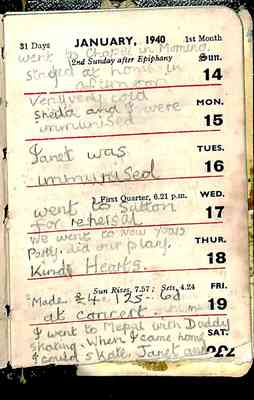 31 Days JANUARY, 1940 1st Month
went to Chapel in Morning.
2nd Sunday after Epiphany Sun.
stayed at home in 14
afternoon
Very very cold MON.
Sheila and I were 15
immunised
Janet was TUES.
immunised 16
First Quarter, 6.21 p.m. WED.
went to Sutton 17
for rehersal
We went to New years THUR.
Party. did our play. 18
Kind Hearts.
Sun Rises, 7.57; Sets, 4.24 FRI.
Made £4 12s-6d 19
at concert.
I went to Mepal with Daddy SAT.
skating. When I came home
I could skate. Janet and